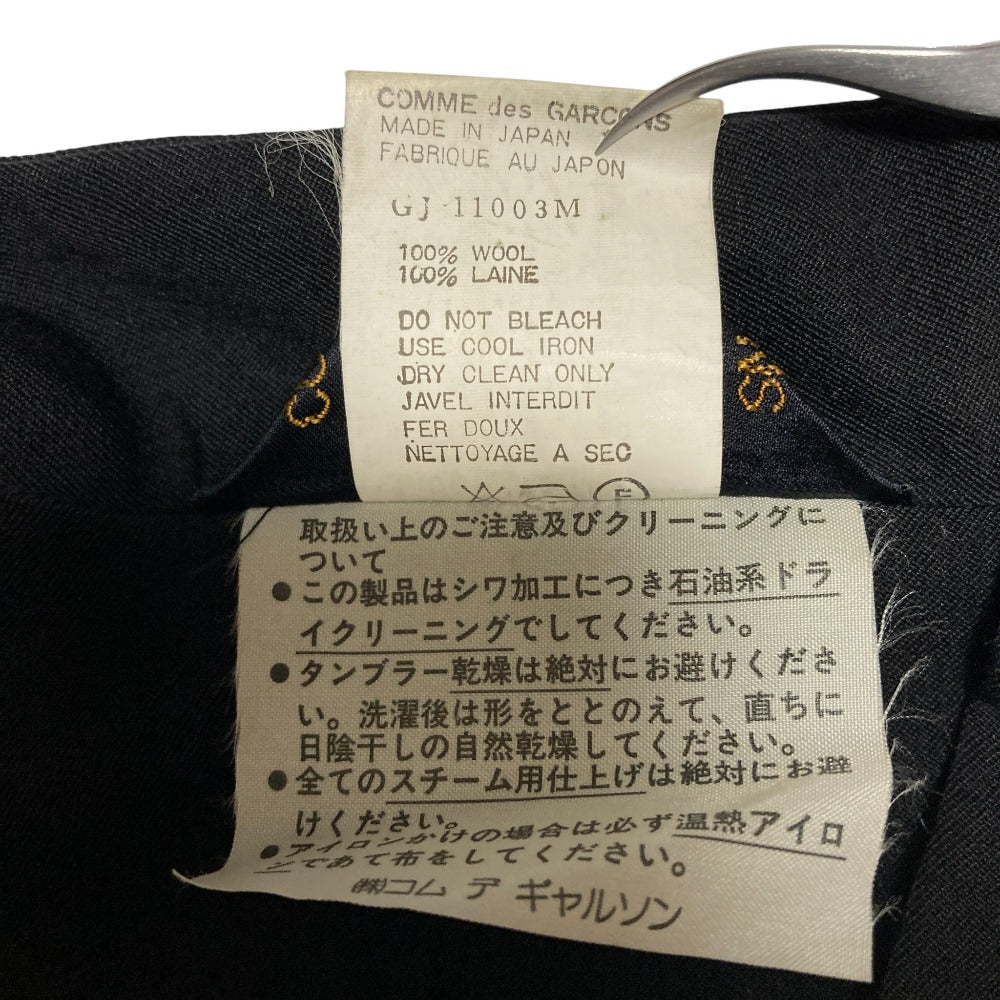 COMME des GARCONS
MADE IN JAPAN
FABRIQUE AU JAPON
GJ 11003M
100% WOOL
100% LAINE
DO NOT BLEACH
USE COOL IRON
DRY CLEAN ONLY
JAVEL INTERDIT
FER DOUX
NETTOYAGE A SEC
取扱い上のご注意及びクリーニングに
ついて
●この製品はシワ加工につき石油系ドラ
イクリーニングでしてください。
●タンブラー乾燥は絶対にお避けくださ
い。洗濯後は形をととのえて、直ちに
日陰干しの自然乾燥してください。
●全てのスチーム用仕上げは絶対にお避
けください。
●アイロンかけの場合は必ず温熱アイロ
ンであて布をしてください。
㈱コム デ ギャルソン